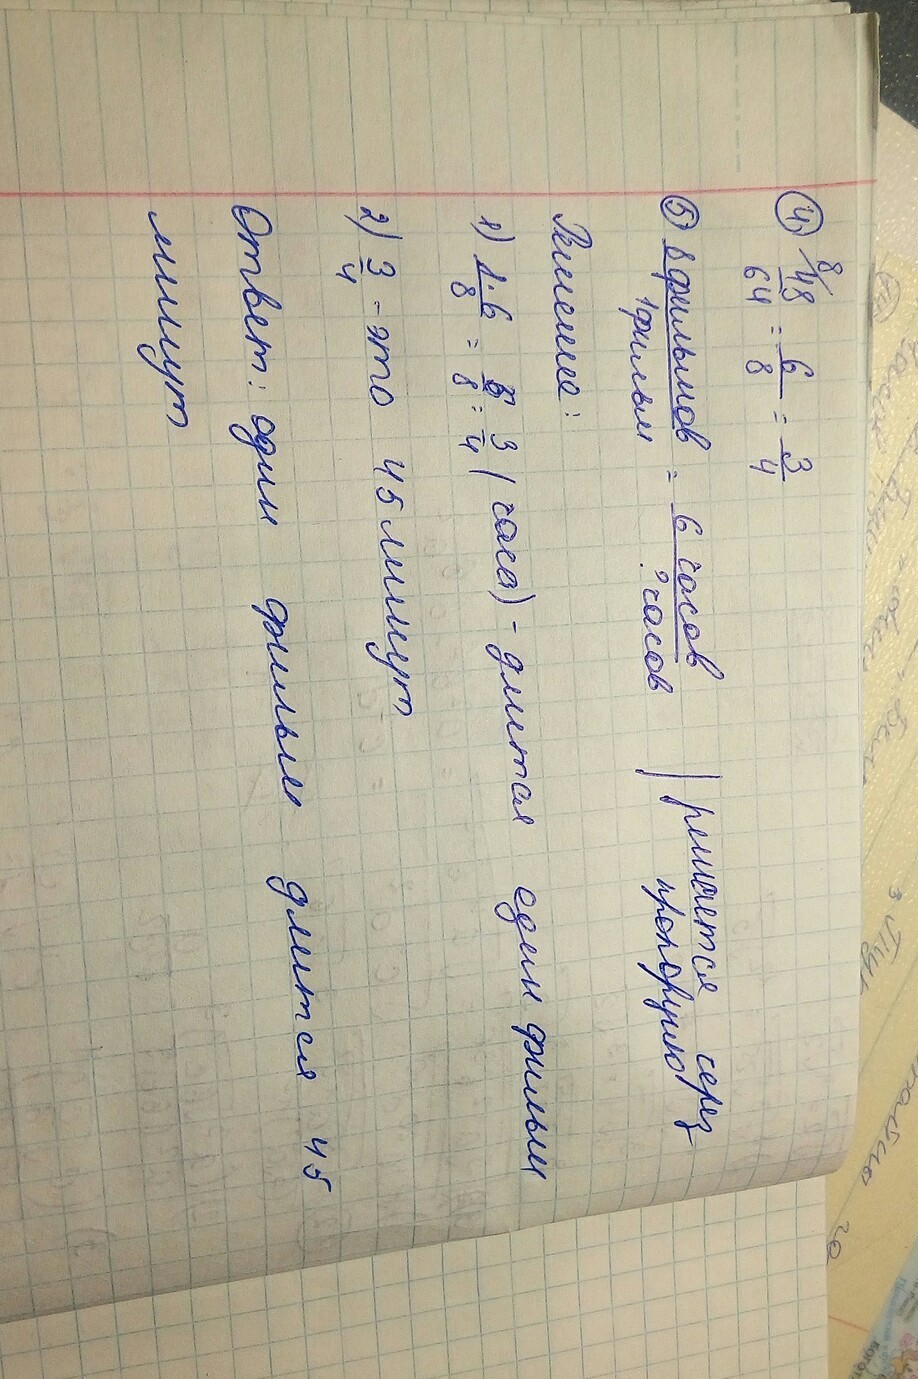 ④ 8/ 48/64 = 6/8 = 3/4
⑤ 8 фильмов/1 фильм = 6 часов/? часов | решается через пропорцию
Решение:
1) 1·6/8 = 6/8 = 3/4 (часа) - длится один фильм
2) 3/4 - это 45 минут
Ответ: один фильм длится 45
минут